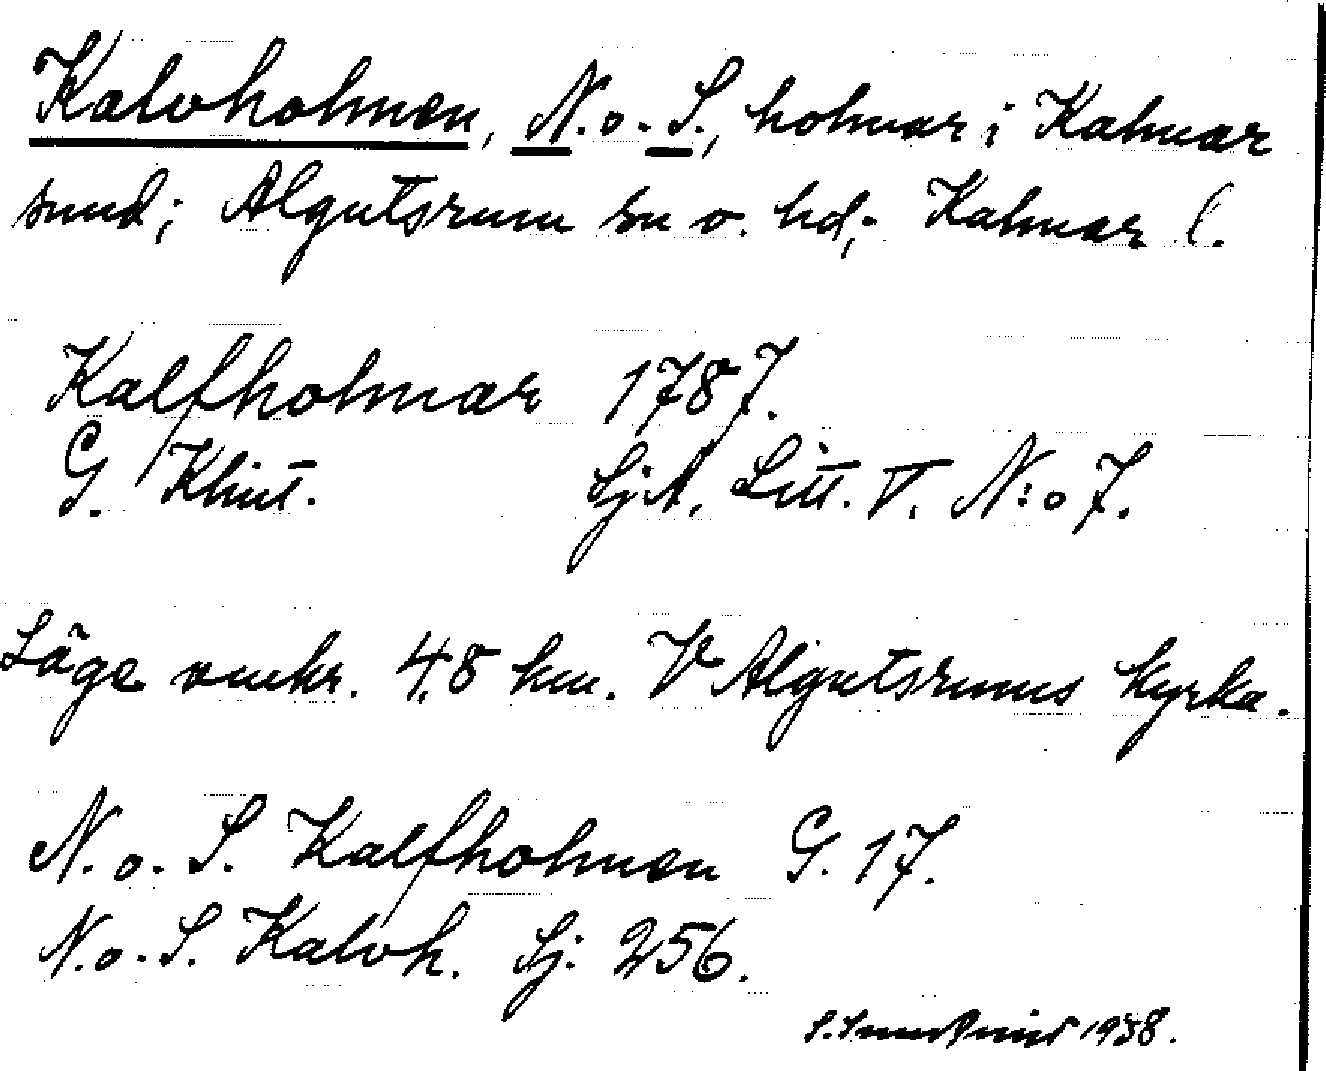 Kalvholmen, N. o. S., holmar i Kalmar
sund; Algutsrum sn o. hd; Kalmar l.
Kalfholmar 1787.
G. Klint. SjA. Litt. V. N:o 7.
Läge omkr. 4,8 km. V Algutsrums kyrka.
N. o. S. Kalfholmen G. 17.
N. o. S. Kalvh. Sj. 256.
1938.